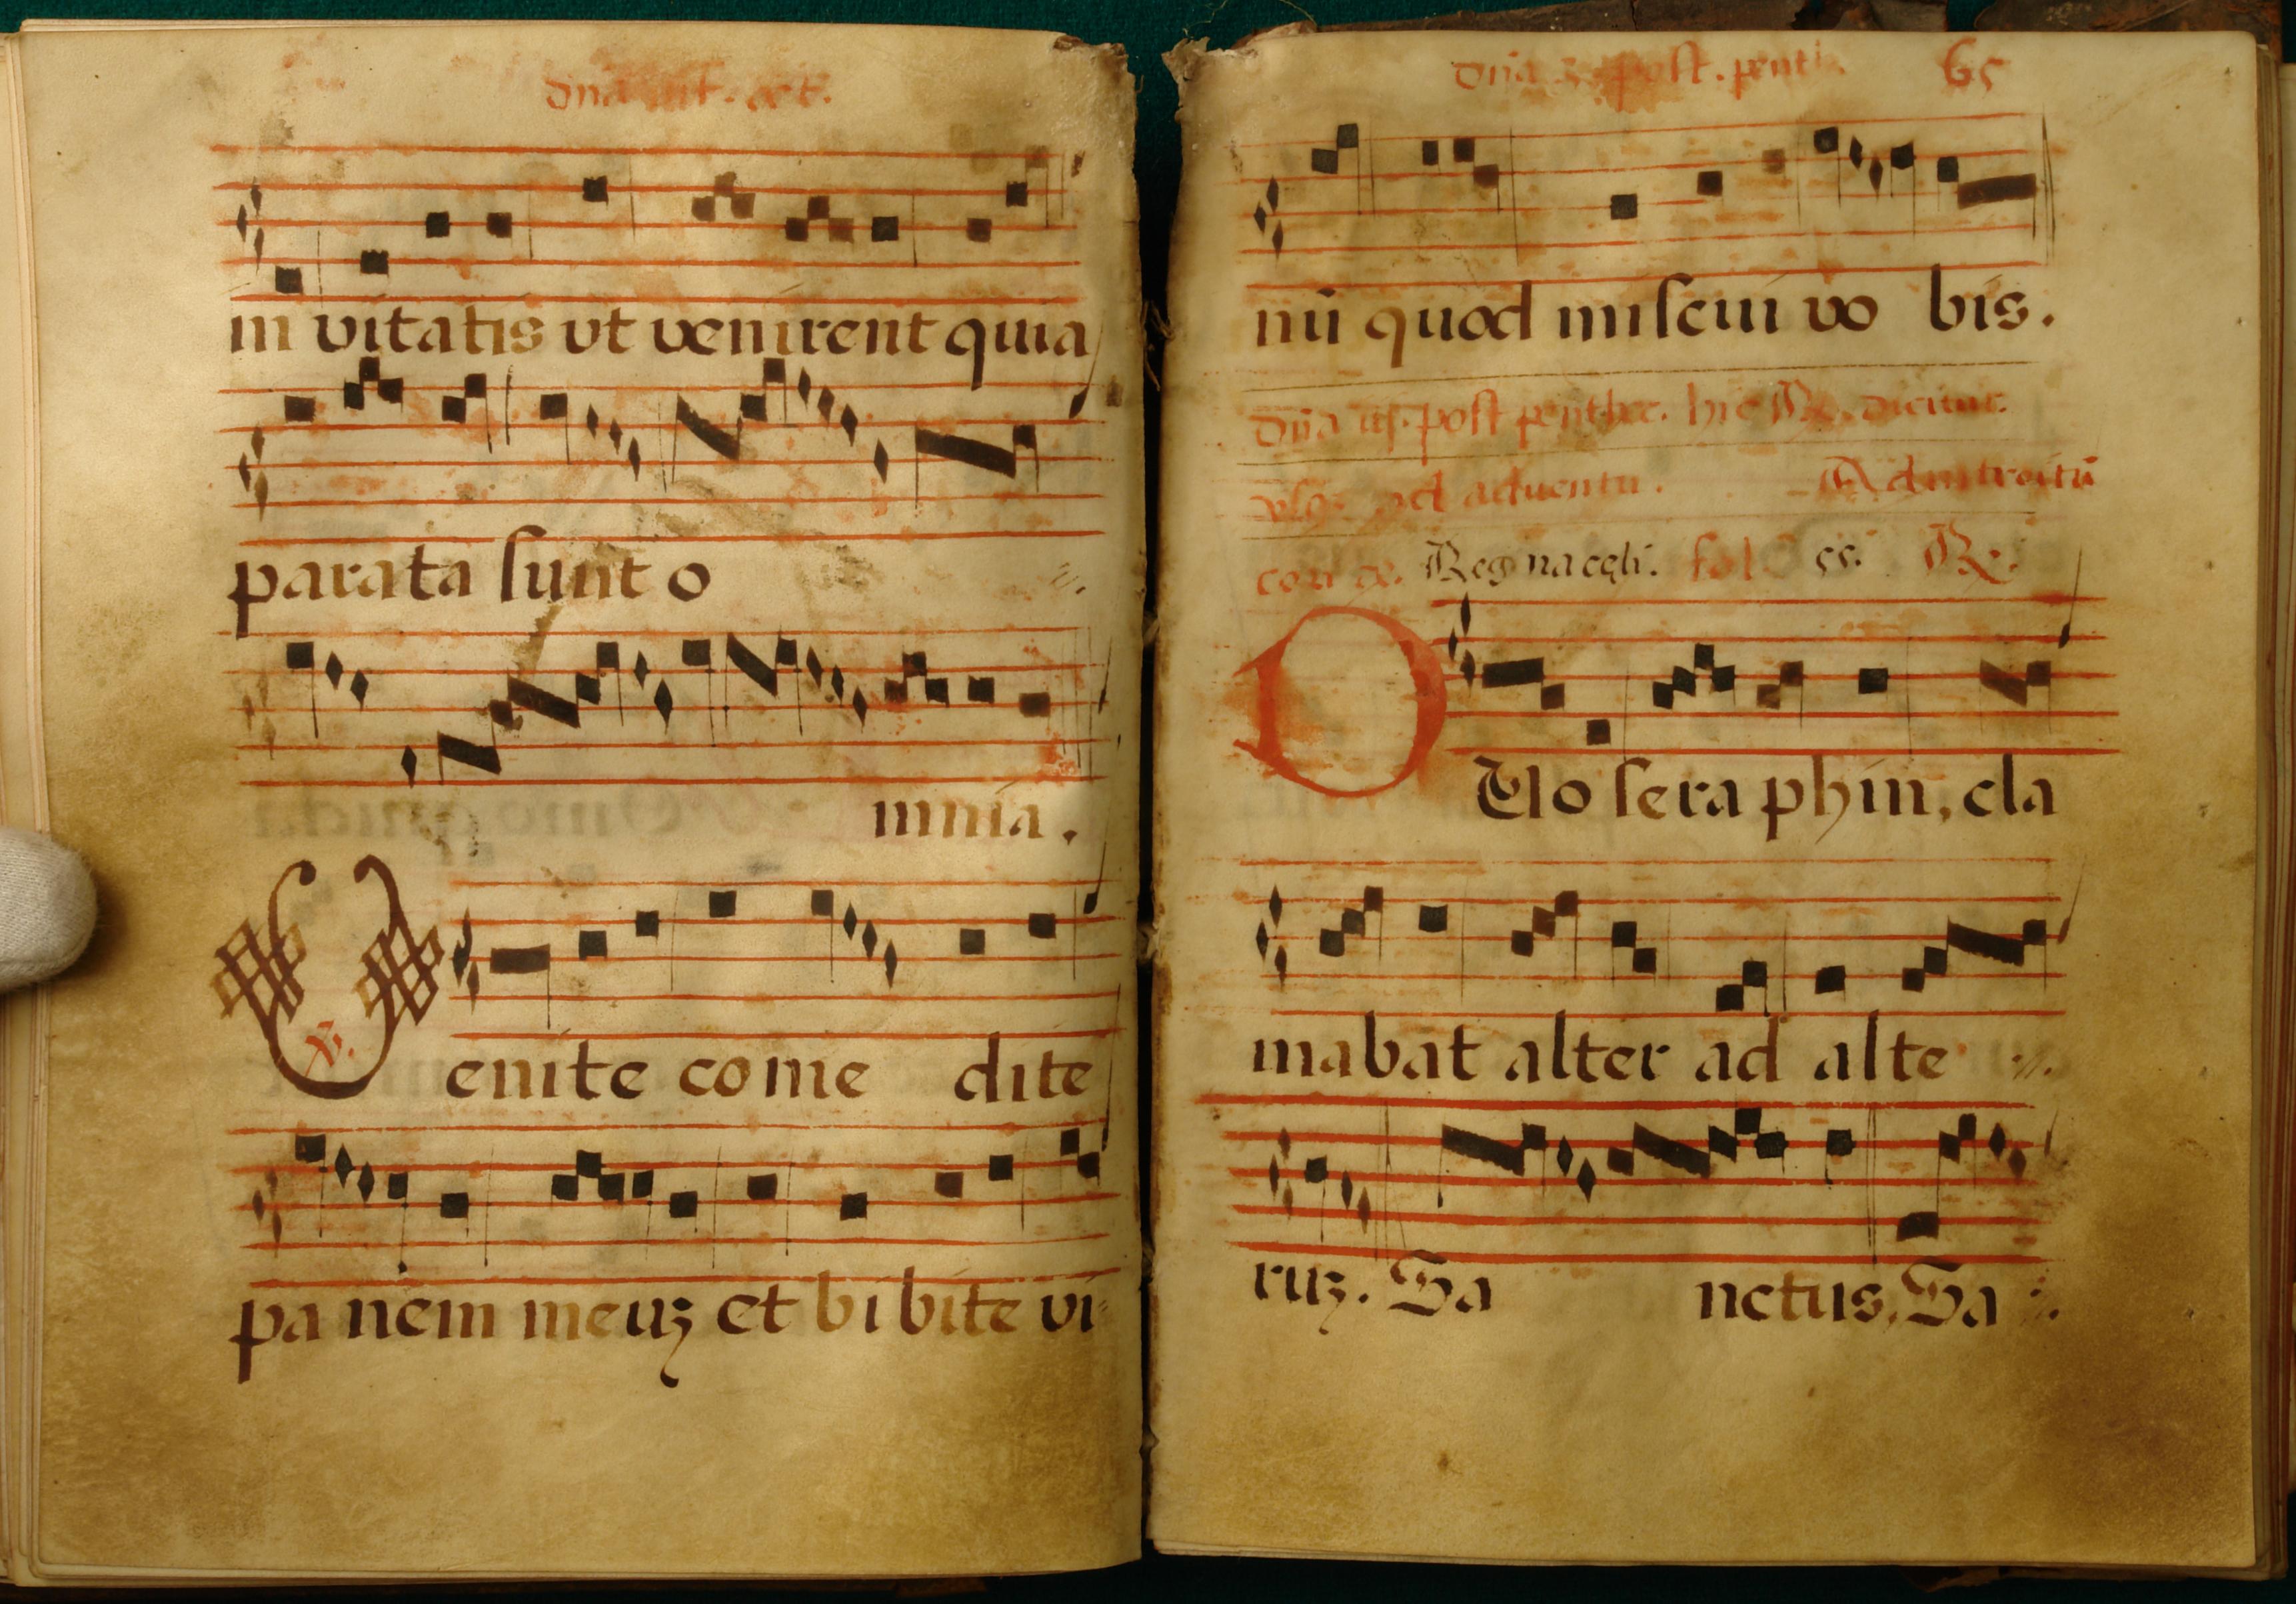 dña oct.
in vitatis vt venirent quia
parata sunt o
mnia.
V enite come dite
℣.
pa nem meuʒ et bi bite vi
dña 3 post. penth. 65
nū quod misciu vo bis.
dña post penthec. hic ℟. dicitur.
vsqʒ ad aduentū. Ad introitū
Regna cęli. fol 55. ℟.
D Vo sera phin, cla
mabat alter ad alte
ruʒ. Sa nctus. Sa